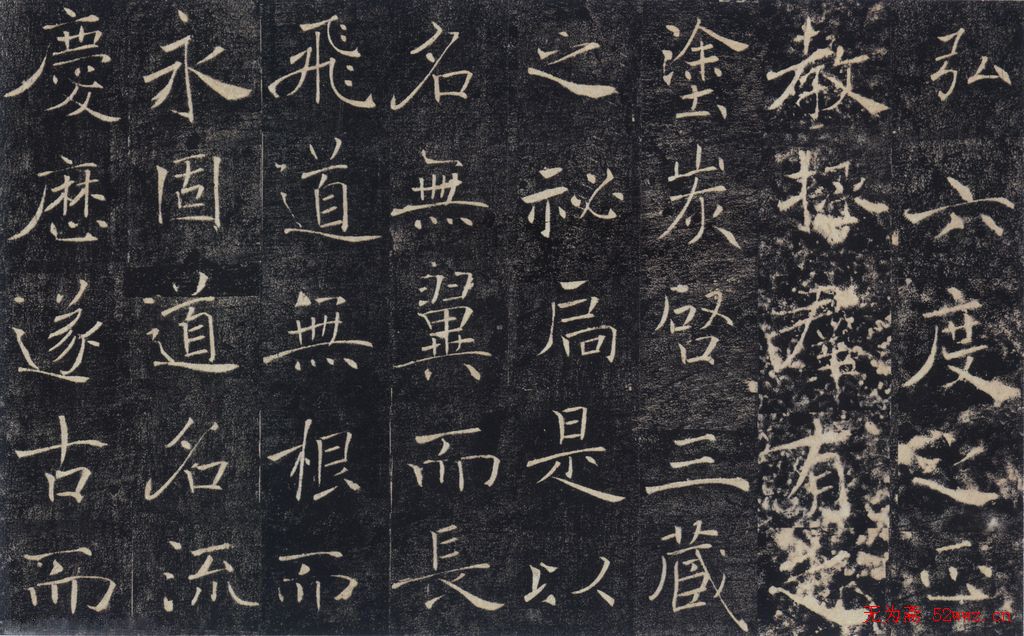 弘六度之正
教拯羣有之
塗炭啓三藏
之祕扃是以
名無翼而長
飛道無根而
永固道名流
慶歷遂古而